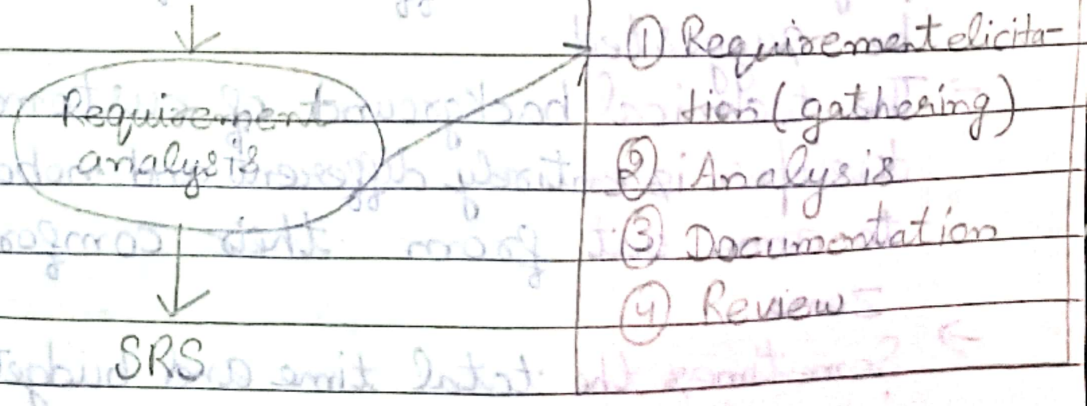 Requirement
analysis
SRS
① Requirement elicita-
tion (gathering)
② Analysis
③ Documentation
④ Review